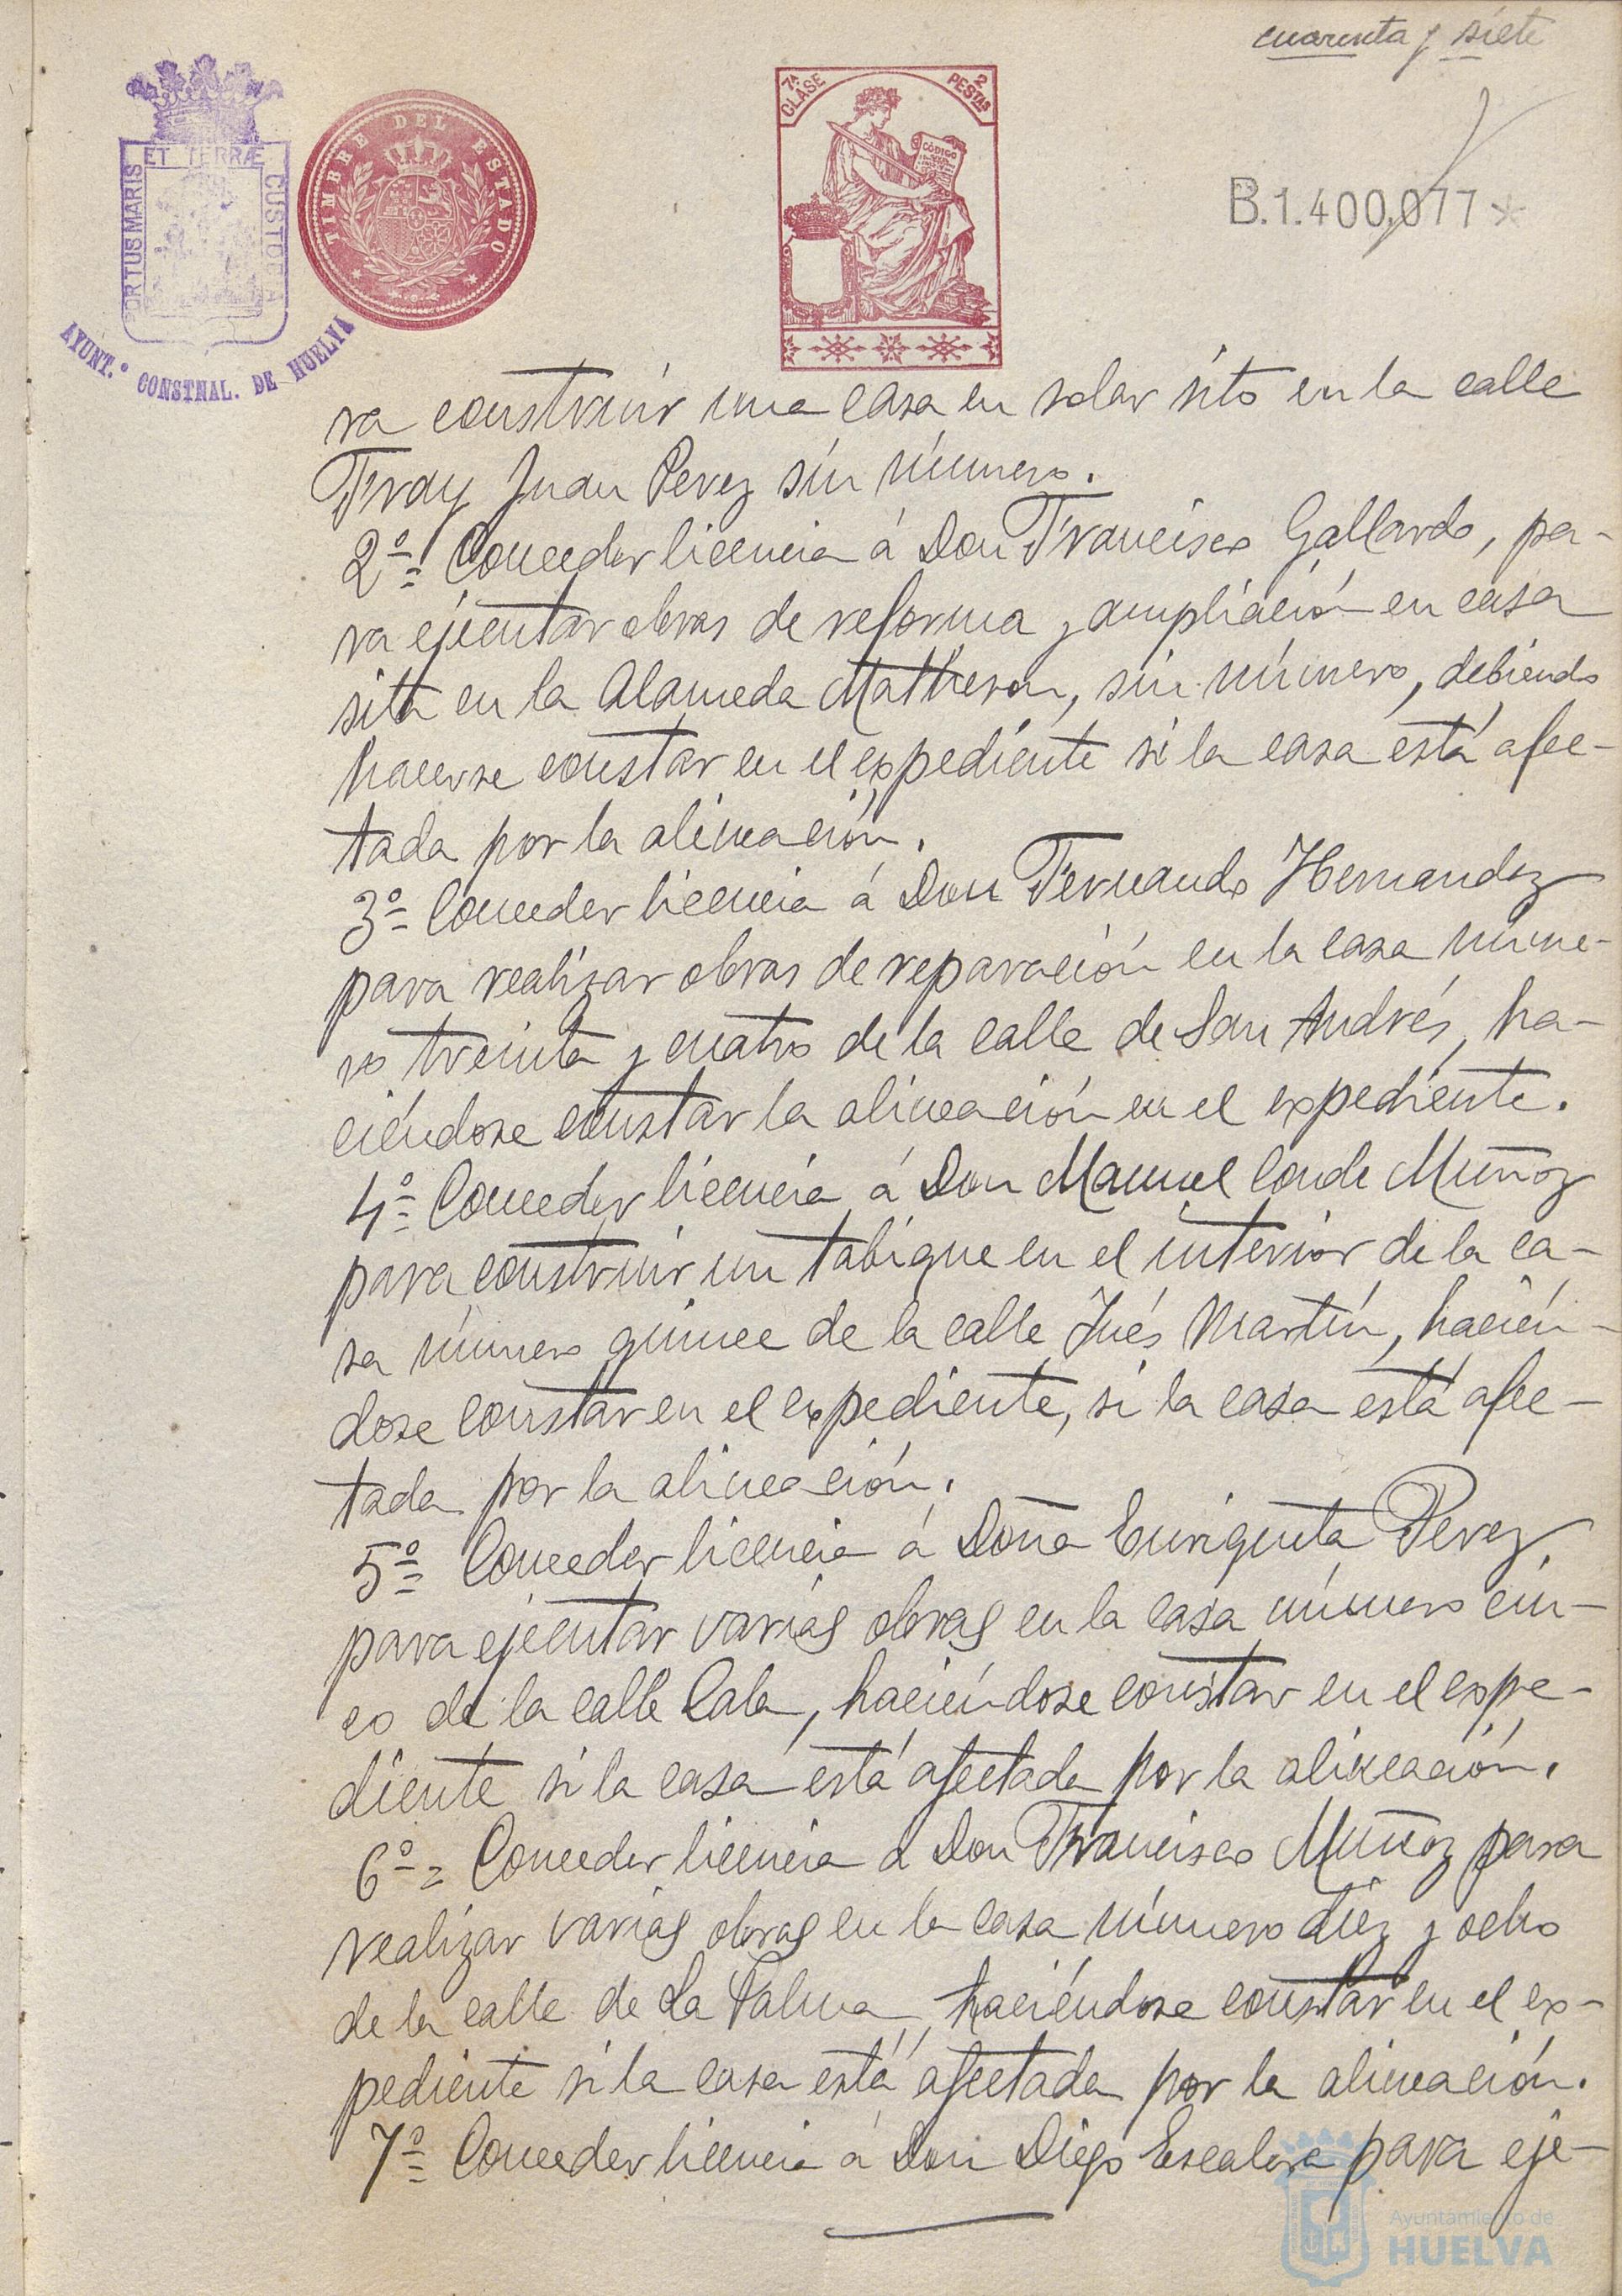 cuarenta y siete
PORTUS MARIS ET TERRÆ CUSTODIA
AYUNT.º CONSTNAL. DE HUELVA
TIMBRE DEL ESTADO
7ª CLASE
2 PESTAS
CÓDIGO
B.1.400,077 *
ra construir una casa en solar sito en la calle
Fray Juan Perez sin número.
2º = Conceder licencia á Don Francisco Gallardo, pa-
ra ejecutar obras de reforma y ampliación en casa
sita en la Alameda Matheron, sin número, debiendo
hacerse constar en el expediente si la casa está afec-
tada por la alineación.
3º = Conceder licencia á Don Fernando Hernandez
para realizar obras de reparación en la casa núme-
ro treinta y cuatro de la calle de San Andrés, ha-
ciéndose constar la alineación en el expediente.
4º = Conceder licencia á Don Manuel Conde Muñoz
para construir un tabique en el interior de la ca-
sa número quince de la calle Inés Martín, hacién-
dose constar en el expediente, si la casa está afec-
tada por la alineación.
5º = Conceder licencia á Doña Enriqueta Perez
para ejecutar varias obras en la casa número cin-
co de la calle Cala, haciéndose constar en el expe-
diente si la casa está afectada por la alineación.
6º = Conceder licencia á Don Francisco Muñoz para
realizar varias obras en la casa número diez y ocho
de la calle de La Palma, haciéndose constar en el ex-
pediente si la casa está afectada por la alineación.
7º = Conceder licencia á Don Diego Escalera para eje-
Ayuntamiento de
HUELVA